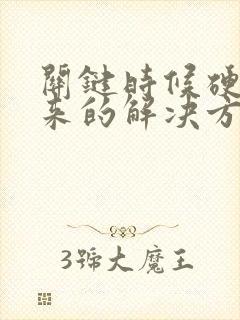 關鍵時候硬
来的解决方
3號大魔王